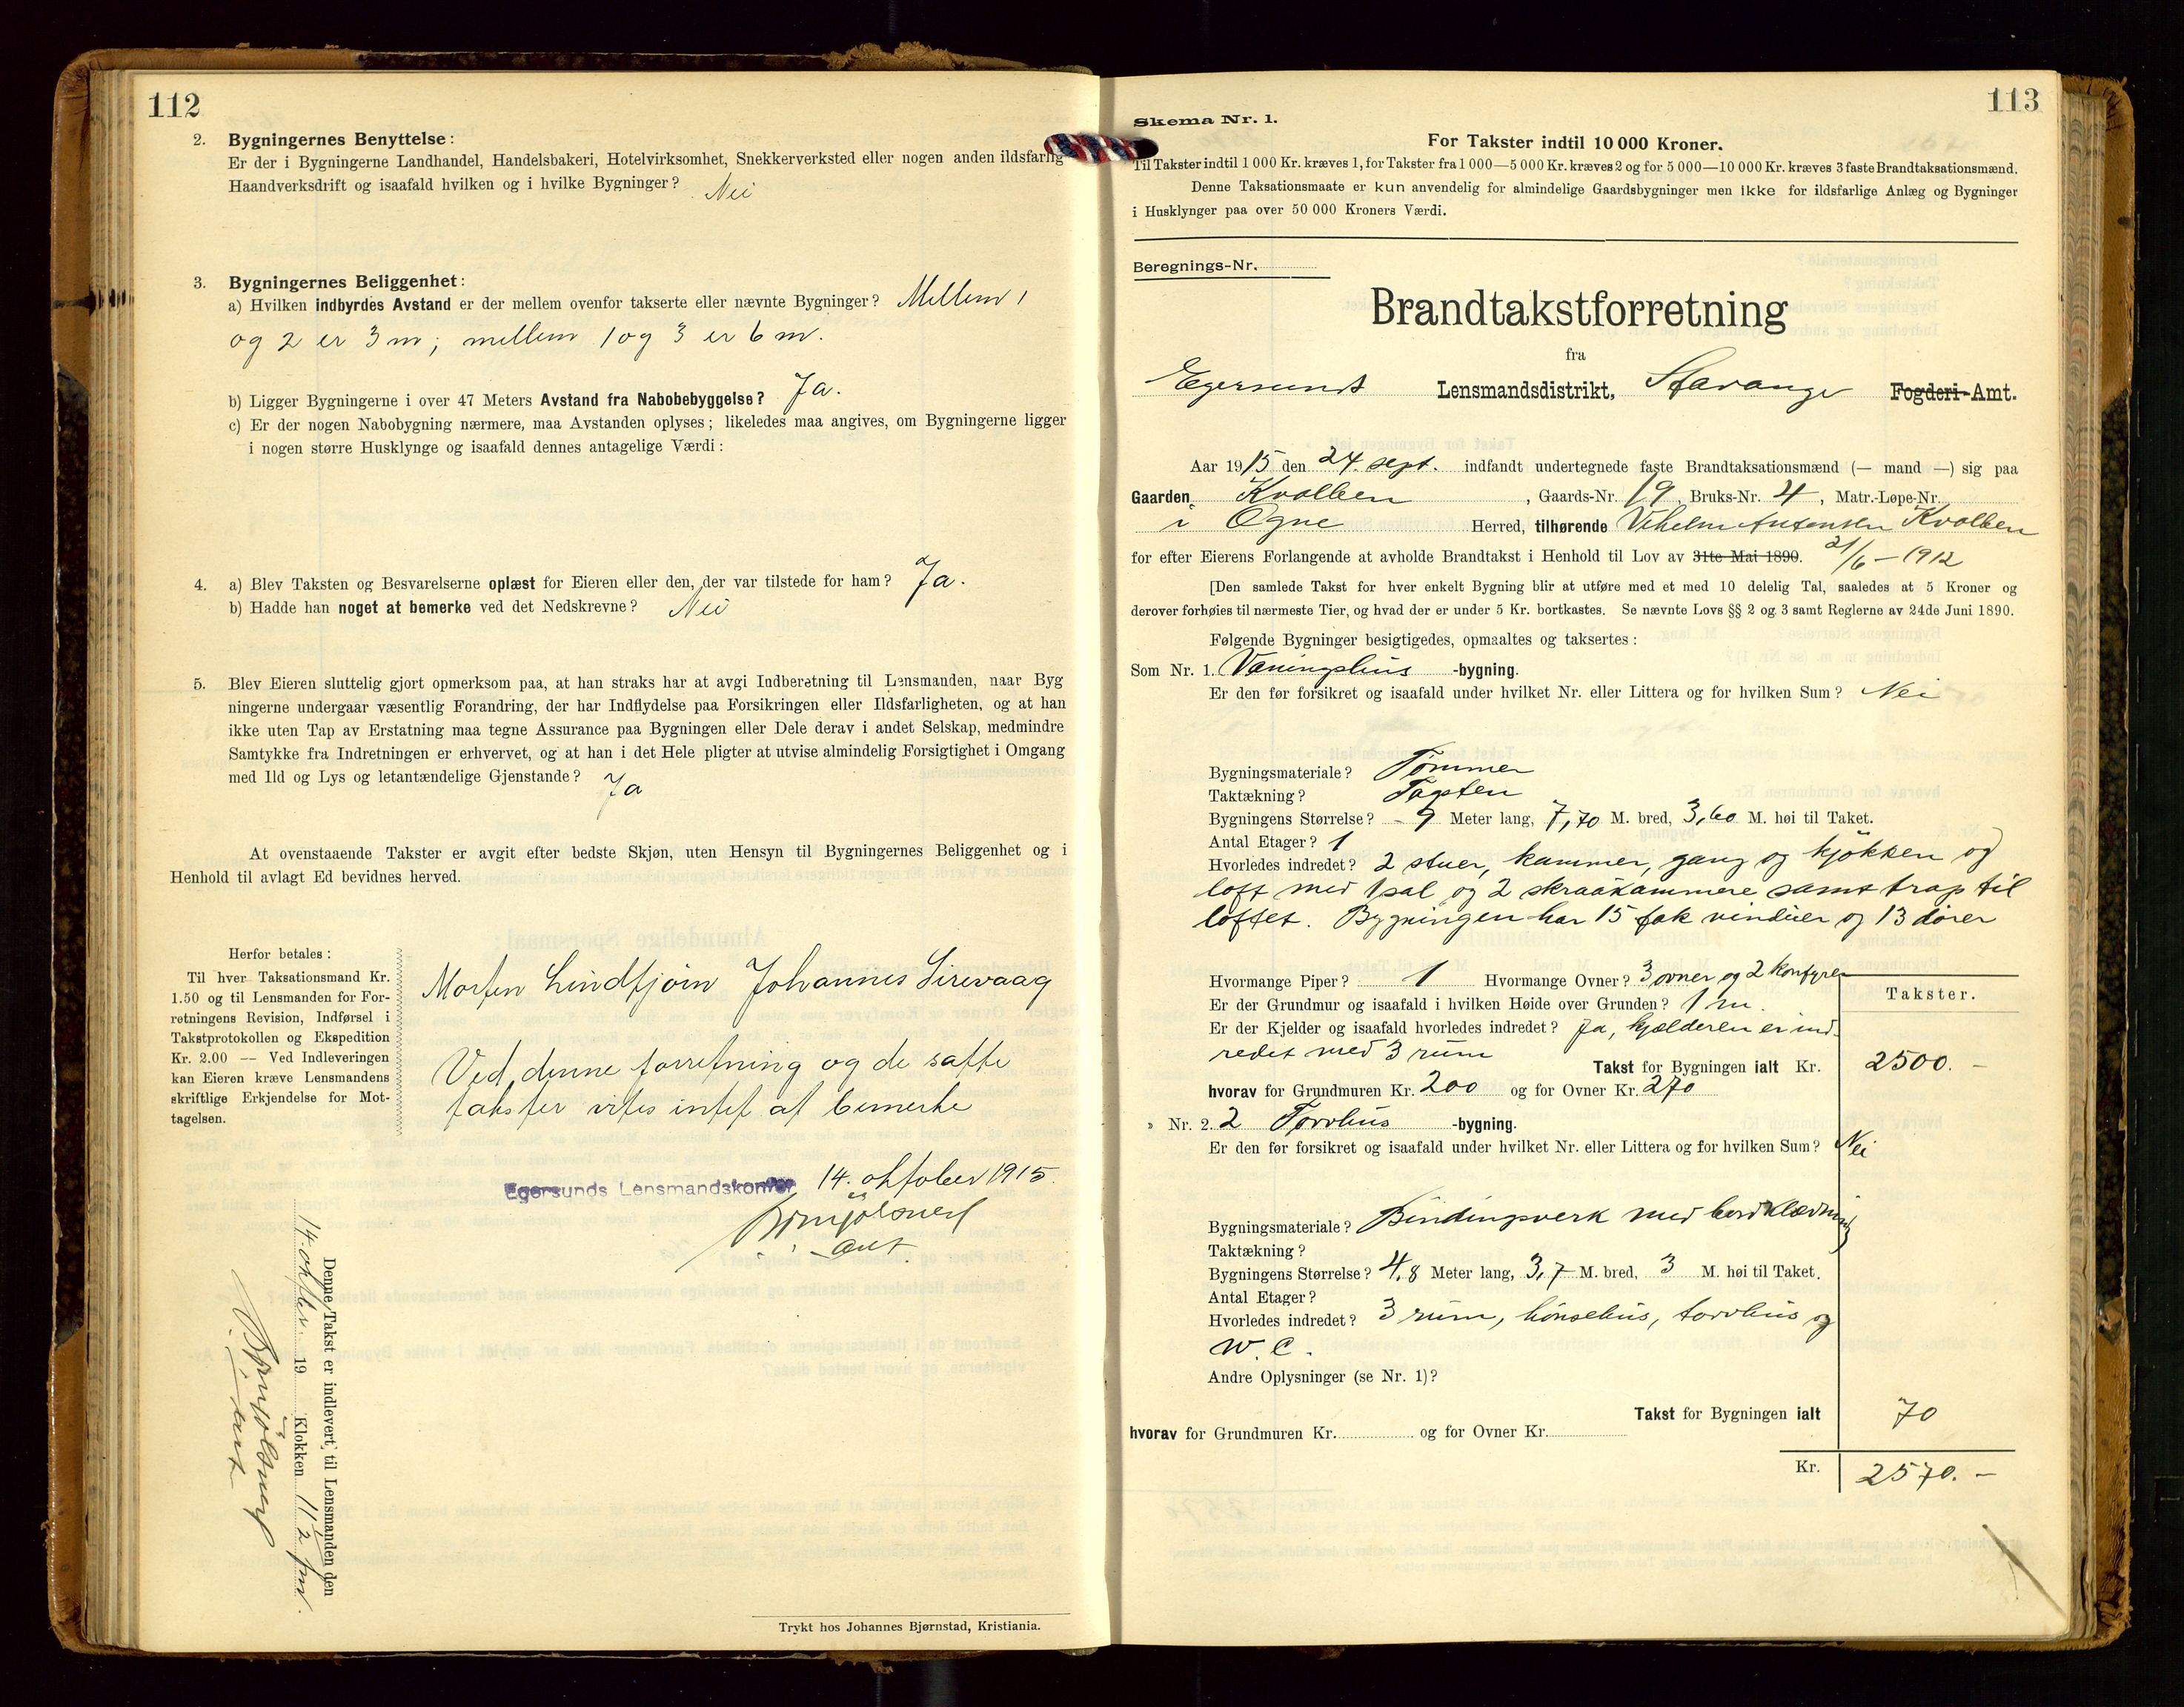 112
2. Bygningernes Benyttelse:
Er der i Bygningerne Landhandel, Handelsbakeri, Hotelvirksomhet, Snekkerverksted eller nogen anden ildsfarlig
Haandverksdrift og isaafald hvilken og i hvilke Bygninger? Nei
3. Bygningernes Beliggenhet:
a) Hvilken indbyrdes Avstand er der mellem ovenfor takserte eller nævnte Bygninger? Mellem 1
og 2 er 3 m; mellem 1 og 3 er 6 m.
b) Ligger Bygningerne i over 47 Meters Avstand fra Nabobebyggelse? Ja.
c) Er der nogen Nabobygning nærmere, maa Avstanden oplyses; likeledes maa angives, om Bygningerne ligger
i nogen større Husklynge og isaafald dennes antagelige Værdi:
4. a) Blev Taksten og Besvarelserne oplæst for Eieren eller den, der var tilstede for ham? Ja.
b) Hadde han noget at bemerke ved det Nedskrevne? Nei
5. Blev Eieren sluttelig gjort opmerksom paa, at han straks har at avgi Indberetning til Lensmanden, naar Byg
ningerne undergaar væsentlig Forandring, der har Indflydelse paa Forsikringen eller Ildsfarligheten, og at han
ikke uten Tap av Erstatning maa tegne Assurance paa Bygningen eller Dele derav i andet Selskap, medmindre
Samtykke fra Indretningen er erhvervet, og at han i det Hele pligter at utvise almindelig Forsigtighet i Omgang
med Ild og Lys og letantændelige Gjenstande? Ja
At ovenstaaende Takster er avgit efter bedste Skjøn, uten Hensyn til Bygningernes Beliggenhet og i
Henhold til avlagt Ed bevidnes herved.
Herfor betales:
Til hver Taksationsmand Kr.
1.50 og til Lensmanden for For-
retningens Revision, Indførsel i
Takstprotokollen og Ekspedition
Kr. 2.00 — Ved Indleveringen
kan Eieren kræve Lensmandens
skriftlige Erkjendelse for Mot-
tagelsen.
Morten Lindtjørn Johannes Sirevaag
Ved denne forretning og de satte
takster vites intet at bemerke
Egersunds Lensmandskontor 14. oktober 1915.
Denne Takst er indlevert til Lensmanden den
14. oktbr. 19 Klokken 11 1/2 fm.
Trykt hos Johannes Bjørnstad, Kristiania.
113
Skema Nr. 1.
For Takster indtil 10 000 Kroner.
Til Takster indtil 1 000 Kr. kræves 1, for Takster fra 1 000—5 000 Kr. kræves 2 og for 5 000—10 000 Kr. kræves 3 faste Brandtaksationsmænd.
Denne Taksationsmaate er kun anvendelig for almindelige Gaardsbygninger men ikke for ildsfarlige Anlæg og Bygninger
i Husklynger paa over 50 000 Kroners Værdi.
Beregnings-Nr.
Brandtakstforretning
fra
Egersund Lensmandsdistrikt, Stavanger Fogderi-Amt.
Aar 1915 den 24 sept. indfandt undertegnede faste Brandtaksationsmænd (— mand —) sig paa
Gaarden Kvalben, Gaards-Nr. 19, Bruks-Nr. 4, Matr.-Løpe-Nr.
i Ogne Herred, tilhørende Vilhelm Kvalben
for efter Eierens Forlangende at avholde Brandtakst i Henhold til Lov av 31te Mai 1890. 21/6 - 1912
[Den samlede Takst for hver enkelt Bygning blir at utføre med et med 10 delelig Tal, saaledes at 5 Kroner og
derover forhøies til nærmeste Tier, og hvad der er under 5 Kr. bortkastes. Se nævnte Lovs §§ 2 og 3 samt Reglerne av 24de Juni 1890.
Følgende Bygninger besigtigedes, opmaaltes og taksertes:
Som Nr. 1. Vaningshus -bygning.
Er den før forsikret og isaafald under hvilket Nr. eller Littera og for hvilken Sum? Nei
Bygningsmateriale? Tømmer
Taktækning? Tagsten
Bygningens Størrelse? 9 Meter lang, 7,70 M. bred, 3,60 M. høi til Taket.
Antal Etager? 1
Hvorledes indredet? 2 stuer, kammer, gang og kjøkken og
loft med 1 sal og 2 skraakammere samt trap til
loftet. Bygningen har 15 fak vinduer og 13 dører
Hvormange Piper? 1 Hvormange Ovner? 3 ovner og 2 komfyrer
Takster.
Er der Grundmur og isaafald i hvilken Høide over Grunden? 1 m.
Er der Kjelder og isaafald hvorledes indredet? Ja, kjælderen er ind-
redet med 3 rum
Takst for Bygningen ialt Kr. 2500.-
hvorav for Grundmuren Kr. 200 og for Ovner Kr. 270
» Nr. 2. 2 Torvhus -bygning.
Er den før forsikret og isaafald under hvilket Nr. eller Littera og for hvilken Sum? Nei
Bygningsmateriale? Bindingsverk med bordklædning
Taktækning?
Bygningens Størrelse? 4,8 Meter lang, 3,7 M. bred, 3 M. høi til Taket.
Antal Etager?
Hvorledes indredet? 3 rum, hönsehus, torvhus og
W. C.
Andre Oplysninger (se Nr. 1)?
Takst for Bygningen ialt 70
hvorav for Grundmuren Kr. og for Ovner Kr.
Kr. 2570.-